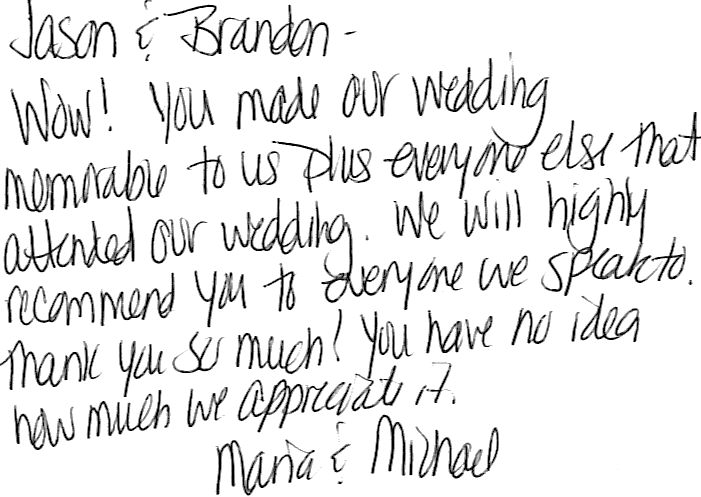 Jason & Brandon -
Wow! You made our wedding
memorable to us plus everyone else that
attended our wedding. We will highly
recommend you to everyone we speak to.
Thank you so much! You have no idea
how much we appreciate it.
Maria & Michael